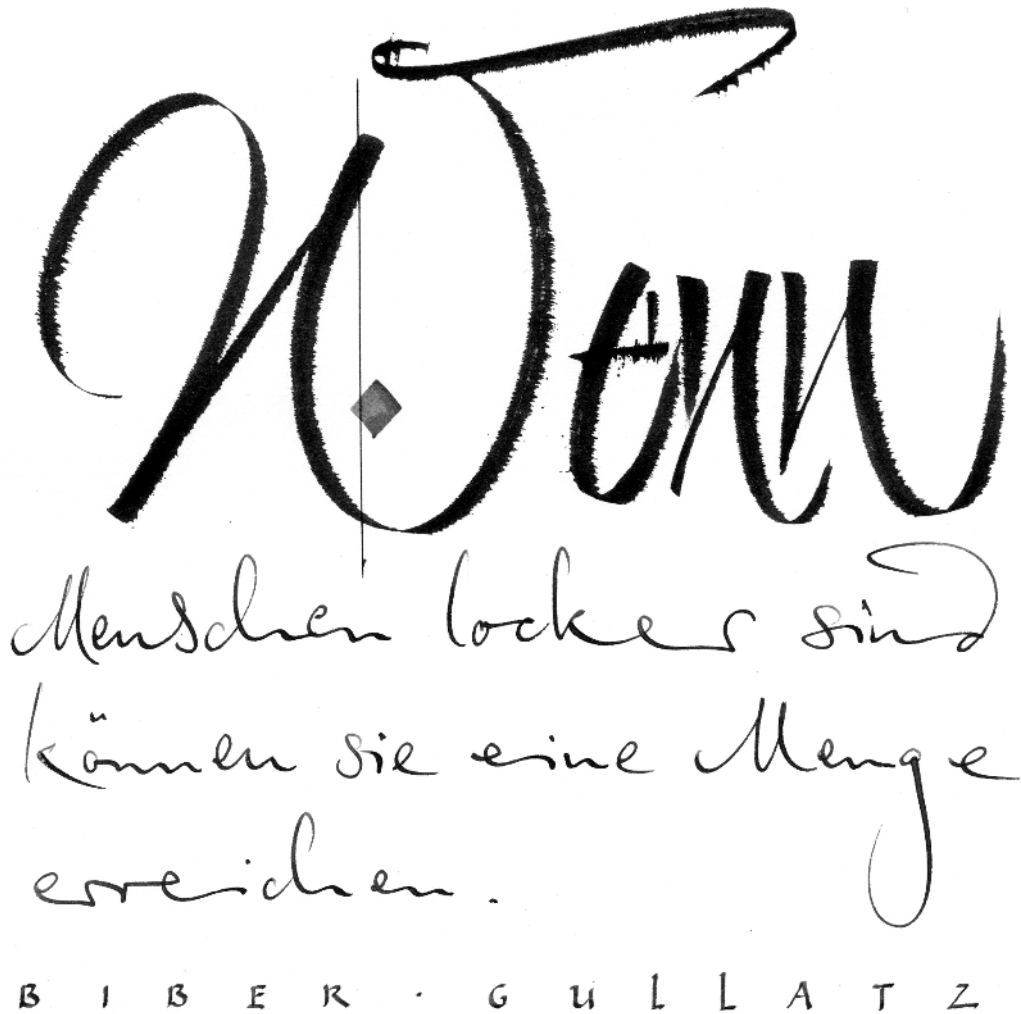 Wenn
Menschen locker sind
können sie eine Menge
erreichen.
BIBER · GULLATZ